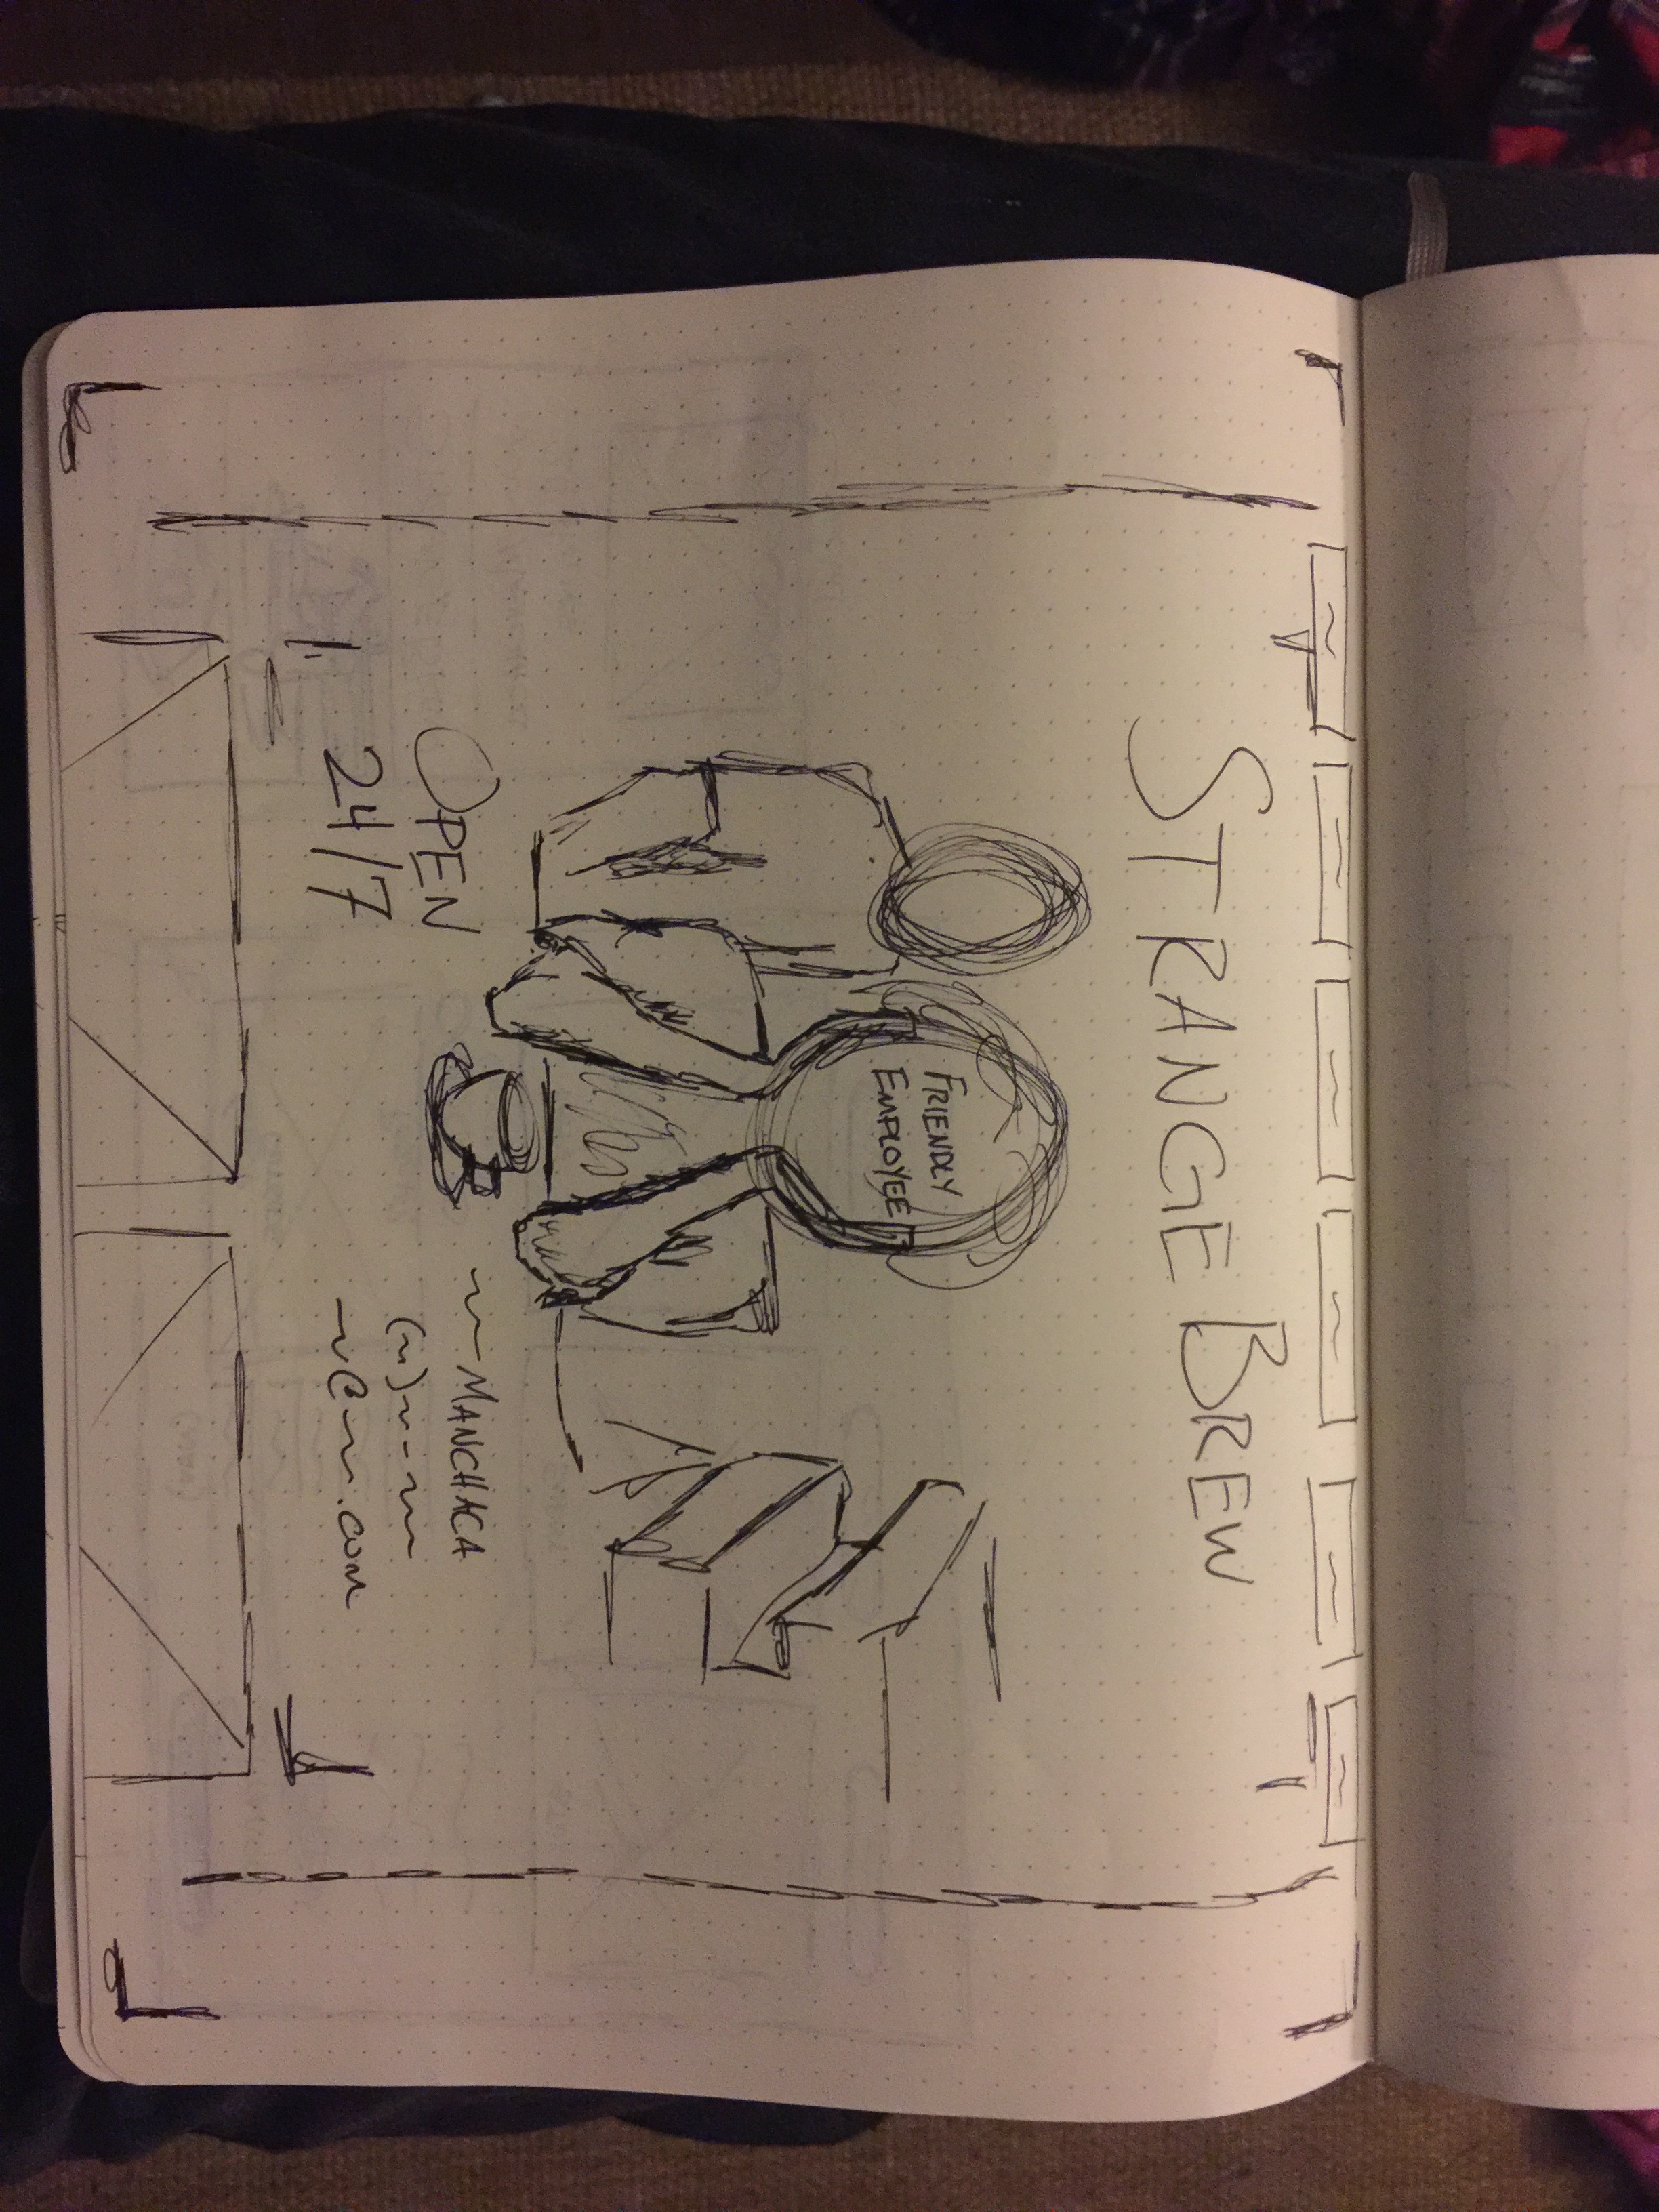 STRANGE BREW
FRIENDLY
EMPLOYEE
OPEN
24/7
MANCHACA
.COM